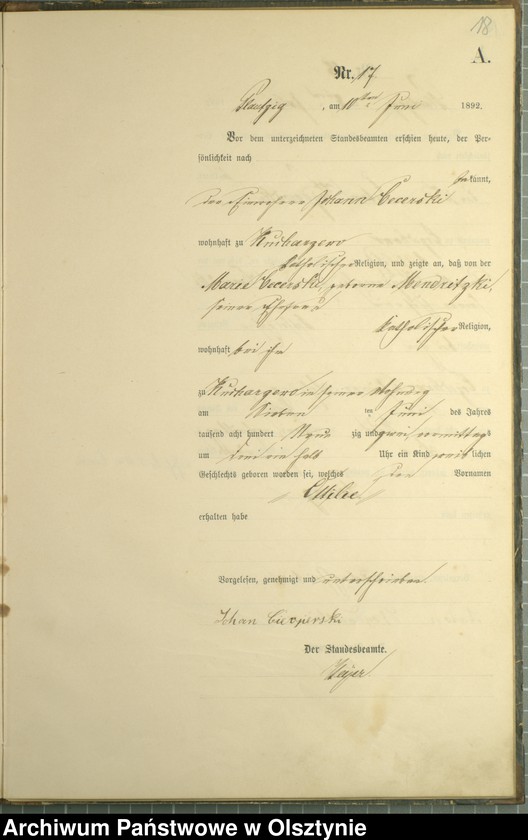 18
A.
Nr. 17
, am 10ten Juni 1892.
Vor dem unterzeichneten Standesbeamten erschien heute, der Per-
sönlichkeit nach
kannt,
der Einwohner Johann Cecerski
wohnhaft zu Kucharzewo
katholischer Religion, und zeigte an, daß von der
Marie Cecerski, geborene Mendritzki,
seiner Ehefrau
katholischer Religion,
wohnhaft bei ihm
zu Kucharzewo in seiner Wohnung
am Sieben ten Juni des Jahres
tausend acht hundert Neun zig und zwei vormittags
um ein halb Uhr ein Kind weib lichen
Geschlechts geboren worden sei, welches den Vornamen
Ottilie
erhalten habe
Vorgelesen, genehmigt und unterschrieben
Johan Cieczperski
Der Standesbeamte.
Archiwum Państwowe w Olsztynie